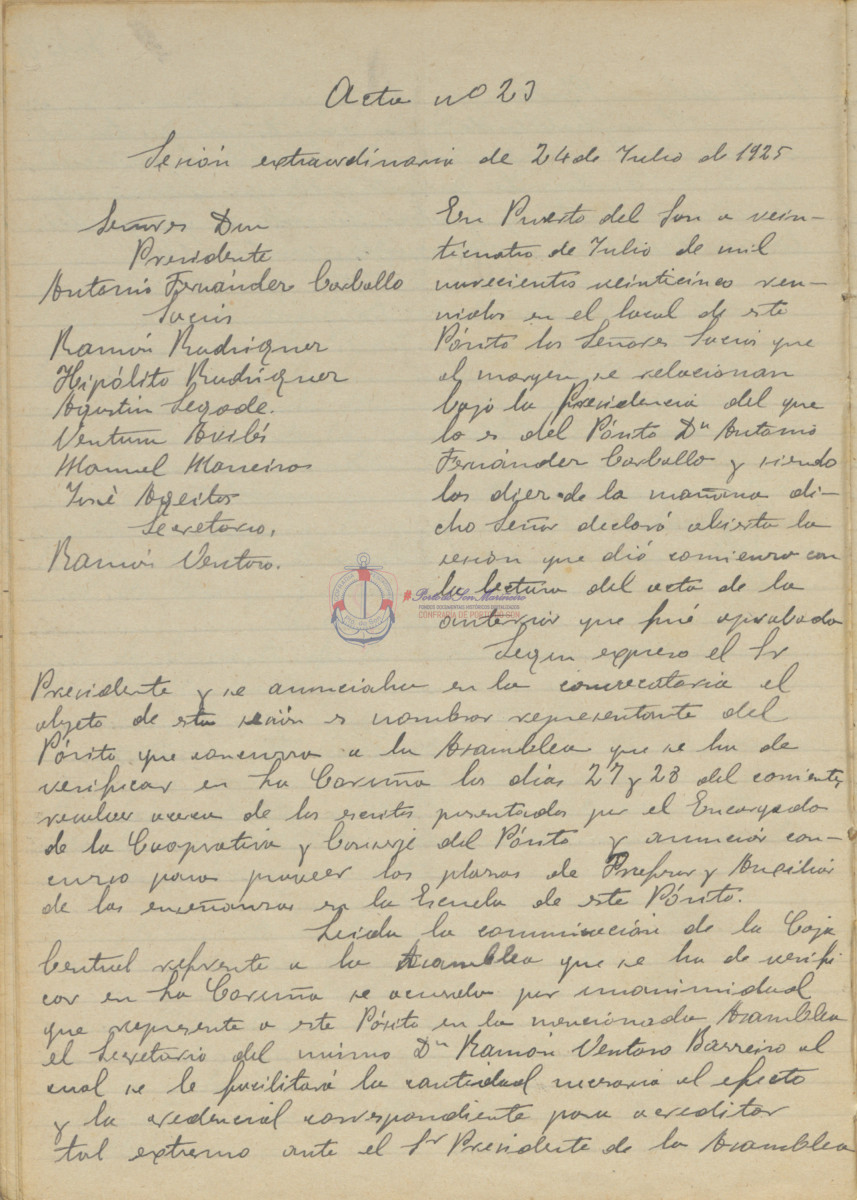 Acta nº 23
Sesión extraordinaria de 24 de Julio de 1925
Señores Dn
Presidente
Antonio Fernández Carballo
Socios
Ramón Rodríguez
Hipólito Rodríguez
Agustín Segade.
Ventura Avilés
Manuel Maneiros
José Ageitos
Secretario,
Ramón Ventoso.
En Puerto del Son a vein-
ticuatro de Julio de mil
novecientos veinticinco reu-
nidos en el local de este
Pósito los Señores Socios que
al margen se relacionan
bajo la Presidencia del que
lo es del Pósito Dn Antonio
Fernández Carballo y siendo
las diez de la mañana di-
cho Señor declaró abierta la
sesión que dió comienzo con
la lectura del acta de la
anterior que fué aprobada
Segun expreso el Sr
Presidente y se anunciaba en la convocatoria el
objeto de esta sesión es nombrar representante del
Pósito que concurra a la Asamblea que se ha de
verificar en La Coruña los días 27 y 28 del corriente,
resolver acerca de los escritos presentados por el Encargado
de la Cooprativa y Conserje del Pósito y anunciar con-
curso para proveer las plazas de Profesor y Auxiliar
de las enseñanzas en la Escuela de este Pósito.
Leida la comunicación de la Caja
Central referente a la Asamblea que se ha de verifi
car en La Coruña se acuerda por unanimidad
que represente a este Pósito en la mencionada Asamblea
el Secretario del mismo Dn Ramón Ventoso Barreiro al
cual se le facilitará la cantidad necesaria al efecto
y la credencial correspondiente para acreditar
tal extremo ante el Sr Presidente de la Asamblea
Porto do Son Mariñeiro
FONDOS DOCUMENTAIS HISTÓRICOS DIXITALIZADOS
CONFRARÍA DE PORTO DO SON